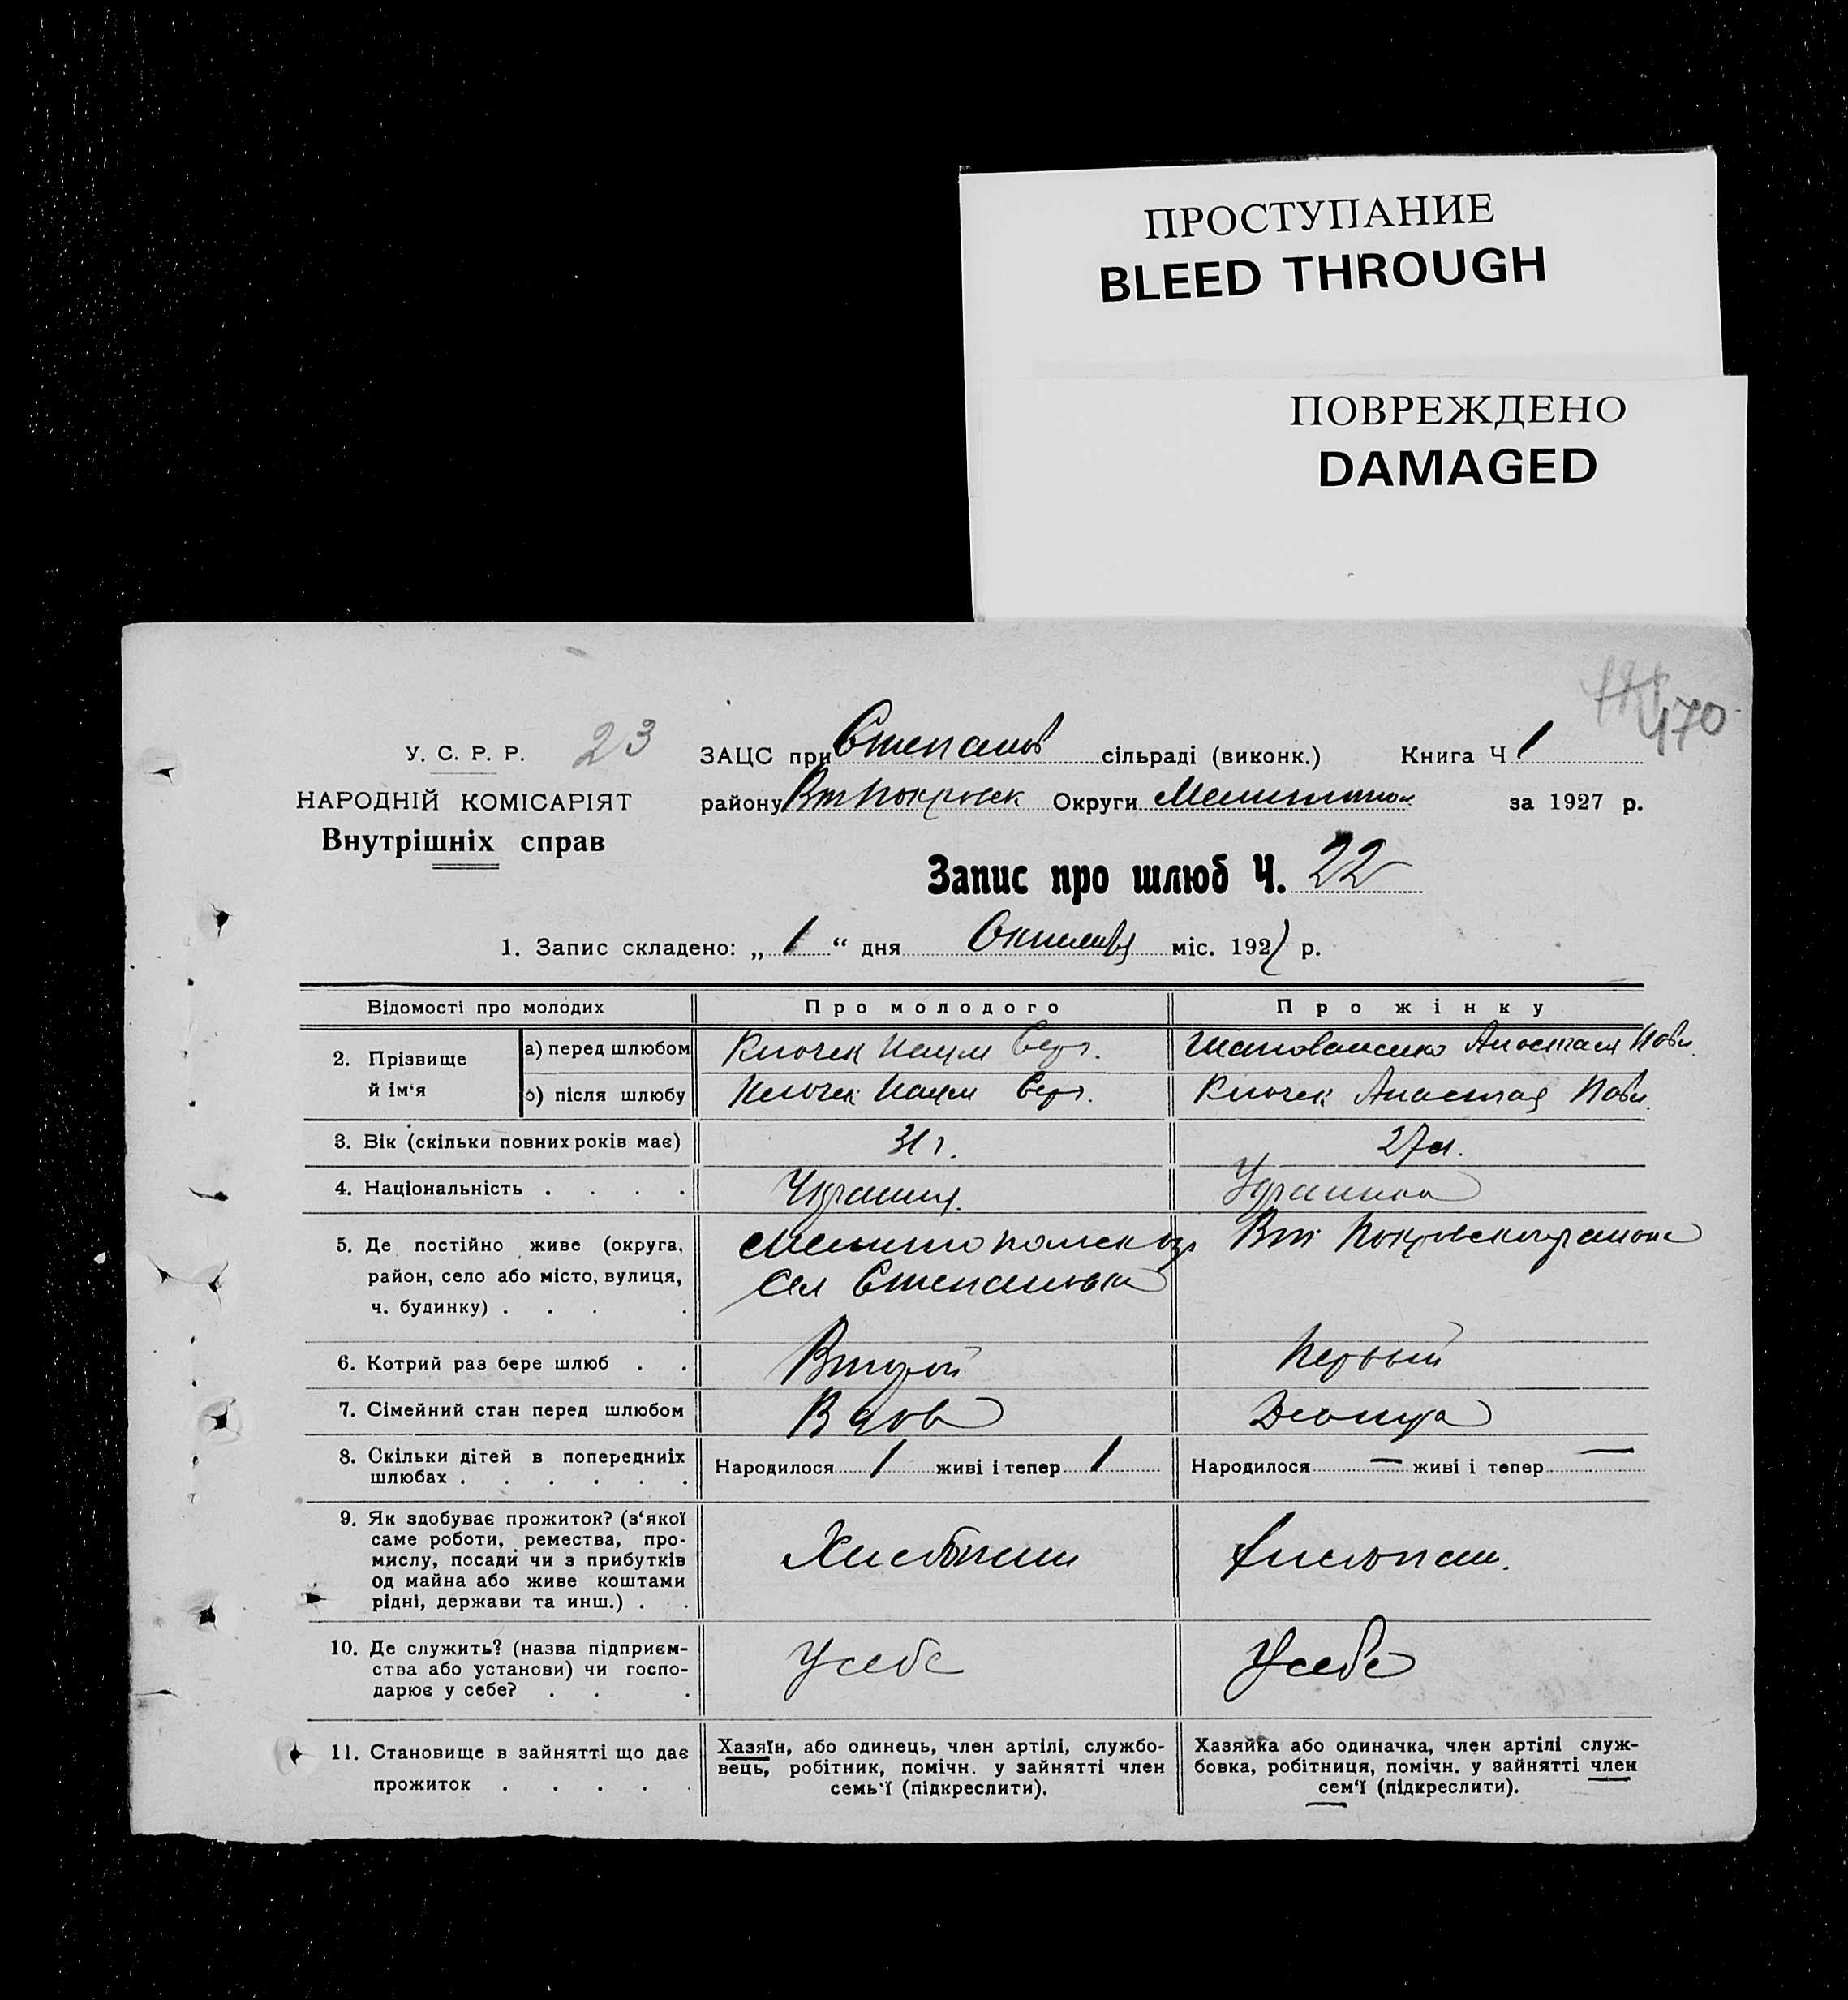 ПРОСТУПАНИЕ
BLEED THROUGH
ПОВРЕЖДЕНО
DAMAGED
470
У. С. Р. Р. 23
НАРОДНІЙ КОМІСАРІЯТ
Внутрішніх справ
ЗАЦС при Степанов сільраді (виконк.) Книга Ч 1
району Вт Покровск Округи за 1927 р.
Запис про шлюб Ч. 22
1. Запис складено: „ 1 “ дня Октября міс. 1927 р.
Відомості про молодих Про молодого Про жінку
2. Прізвище й ім‘я
а) перед шлюбом Клочек Наум Анастасия
б) після шлюбу Клочек Наум Клочек Анастас
3. Вік (скільки повних років має) 31 г. 27 л.
4. Національність . . . . Украинец Украинка
5. Де постійно живе (округа, Мелитопольск окр Вт Покровского района
район, село або місто, вулиця, Сел Степановка
ч. будинку) . . . .
6. Котрий раз бере шлюб . . Второй Первый
7. Сімейний стан перед шлюбом Вдов
8. Скільки дітей в попередниіх Народилося 1 живі і тепер 1 Народилося — живі і тепер —
шлюбах . . . . . .
9. Як здобуває прожиток? (з‘якої
саме роботи, ремества, про-
мислу, посади чи з прибутків Хлебопаш Хлебопаш.
од майна або живе коштами
рідні, держави та инш.) . .
10. Де служить? (назва підприєм- У себе У себе
ства або установи) чи госпо-
дарює у себе? . . .
11. Становище в зайнятті що дає
прожиток . . . . .
Хазяїн, або одинець, член артілі, службо-
вець, робітник, помічн. у зайнятті член
семь‘ї (підкреслити).
Хазяйка або одиначка, член артілі служ-
бовка, робітниця, помічн. у зайнятті член
сем‘ї (підкреслити).